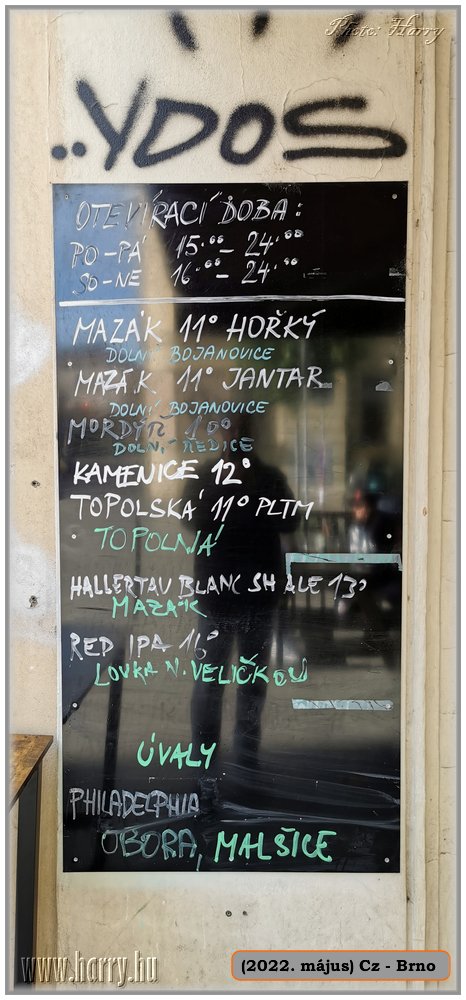 Photo: Harry
..YDOS
OTEVÍRACÍ DOBA:
PO-PÁ 15.00-24.00
SO-NE 16.00-24.00
MAZÁK 11° HOŘKÝ
DOLNÍ BOJANOVICE
MAZÁK 11° JANTAR
DOLNÍ BOJANOVICE
MORDÝŘ
DOLNÍ ŘEDICE
KAMENICE 12°
TOPOLSKÁ 11° PLTM
TOPOLNÁ
HALLERTAU BLANC SH ALE 13°
MAZÁK
RED IPA 16°
N. VELIČKOU
ÚVALY
PHILADELPHIA
OBORA, MALŠICE
www.harry.hu
(2022. május) Cz - Brno